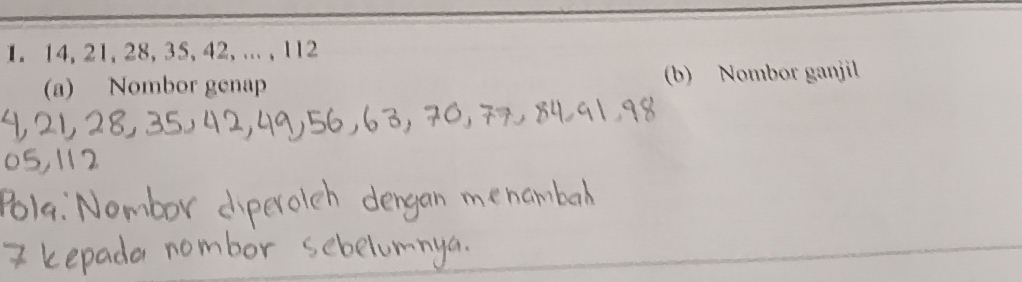 1. 14, 21, 28, 35, 42, ... , 112
(a) Nombor genap
(b) Nombor ganjil
4, 21, 28, 35, 42, 49, 56, 63, 70, 77, 84, 91, 98
05, 112
Pola: Nombor diperoleh dengan menambah
7 kepada nombor sebelumnya.